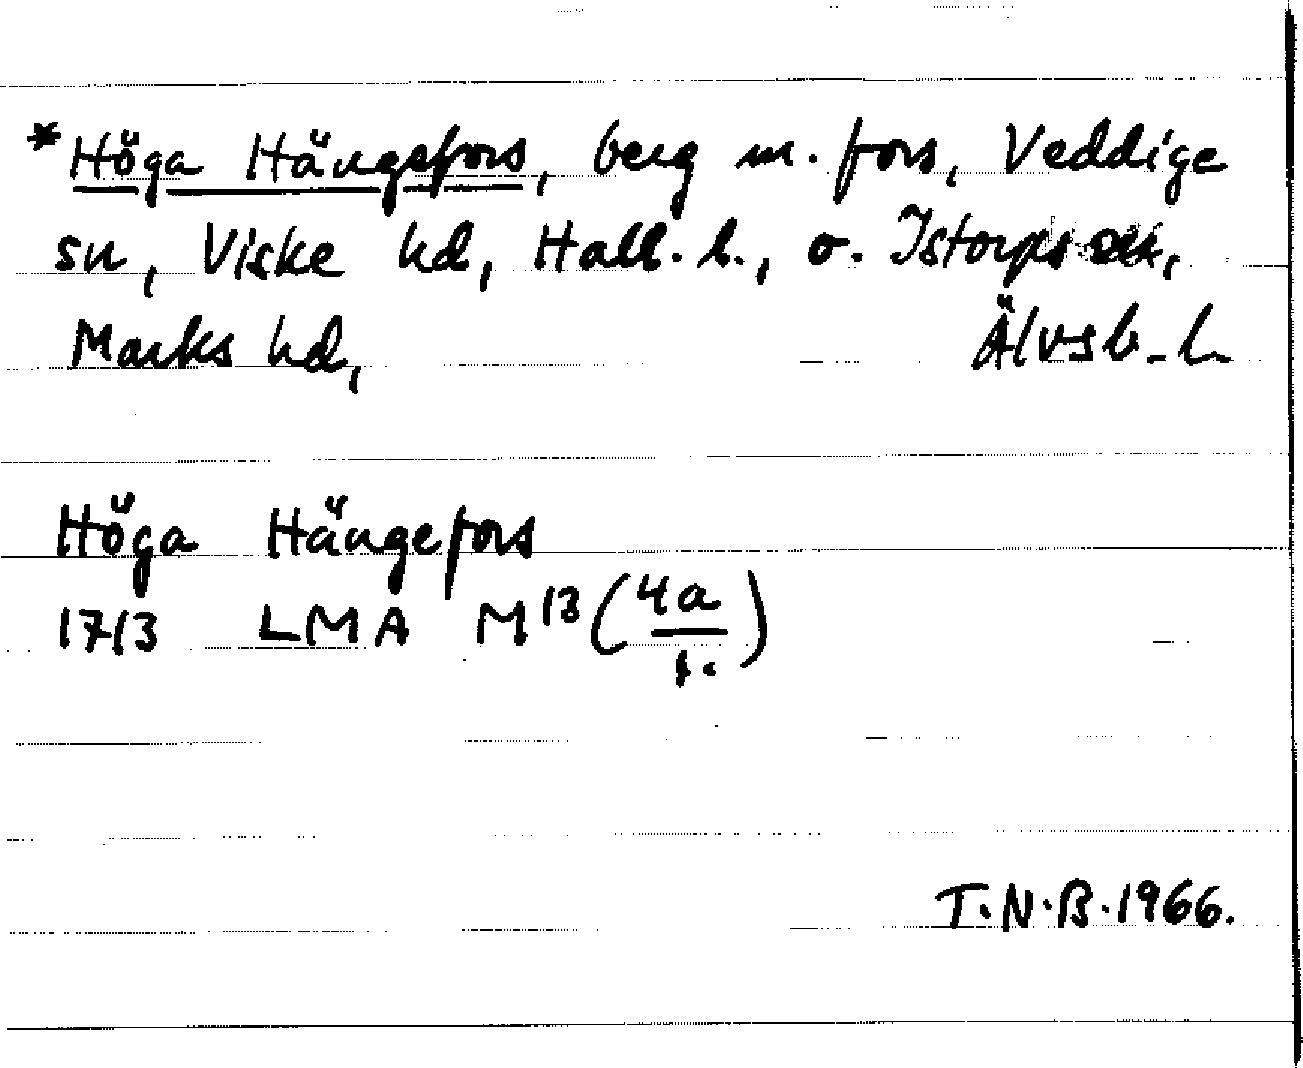 *Höga Hängefors, berg m. fors, Veddige
sn, Viske hd, Hall. l., o. Istorps sn,
Marks hd, Älvsb. l.
Höga Hängefors
1713 LMA M13 (4a/1.)
T.N.B. 1966.